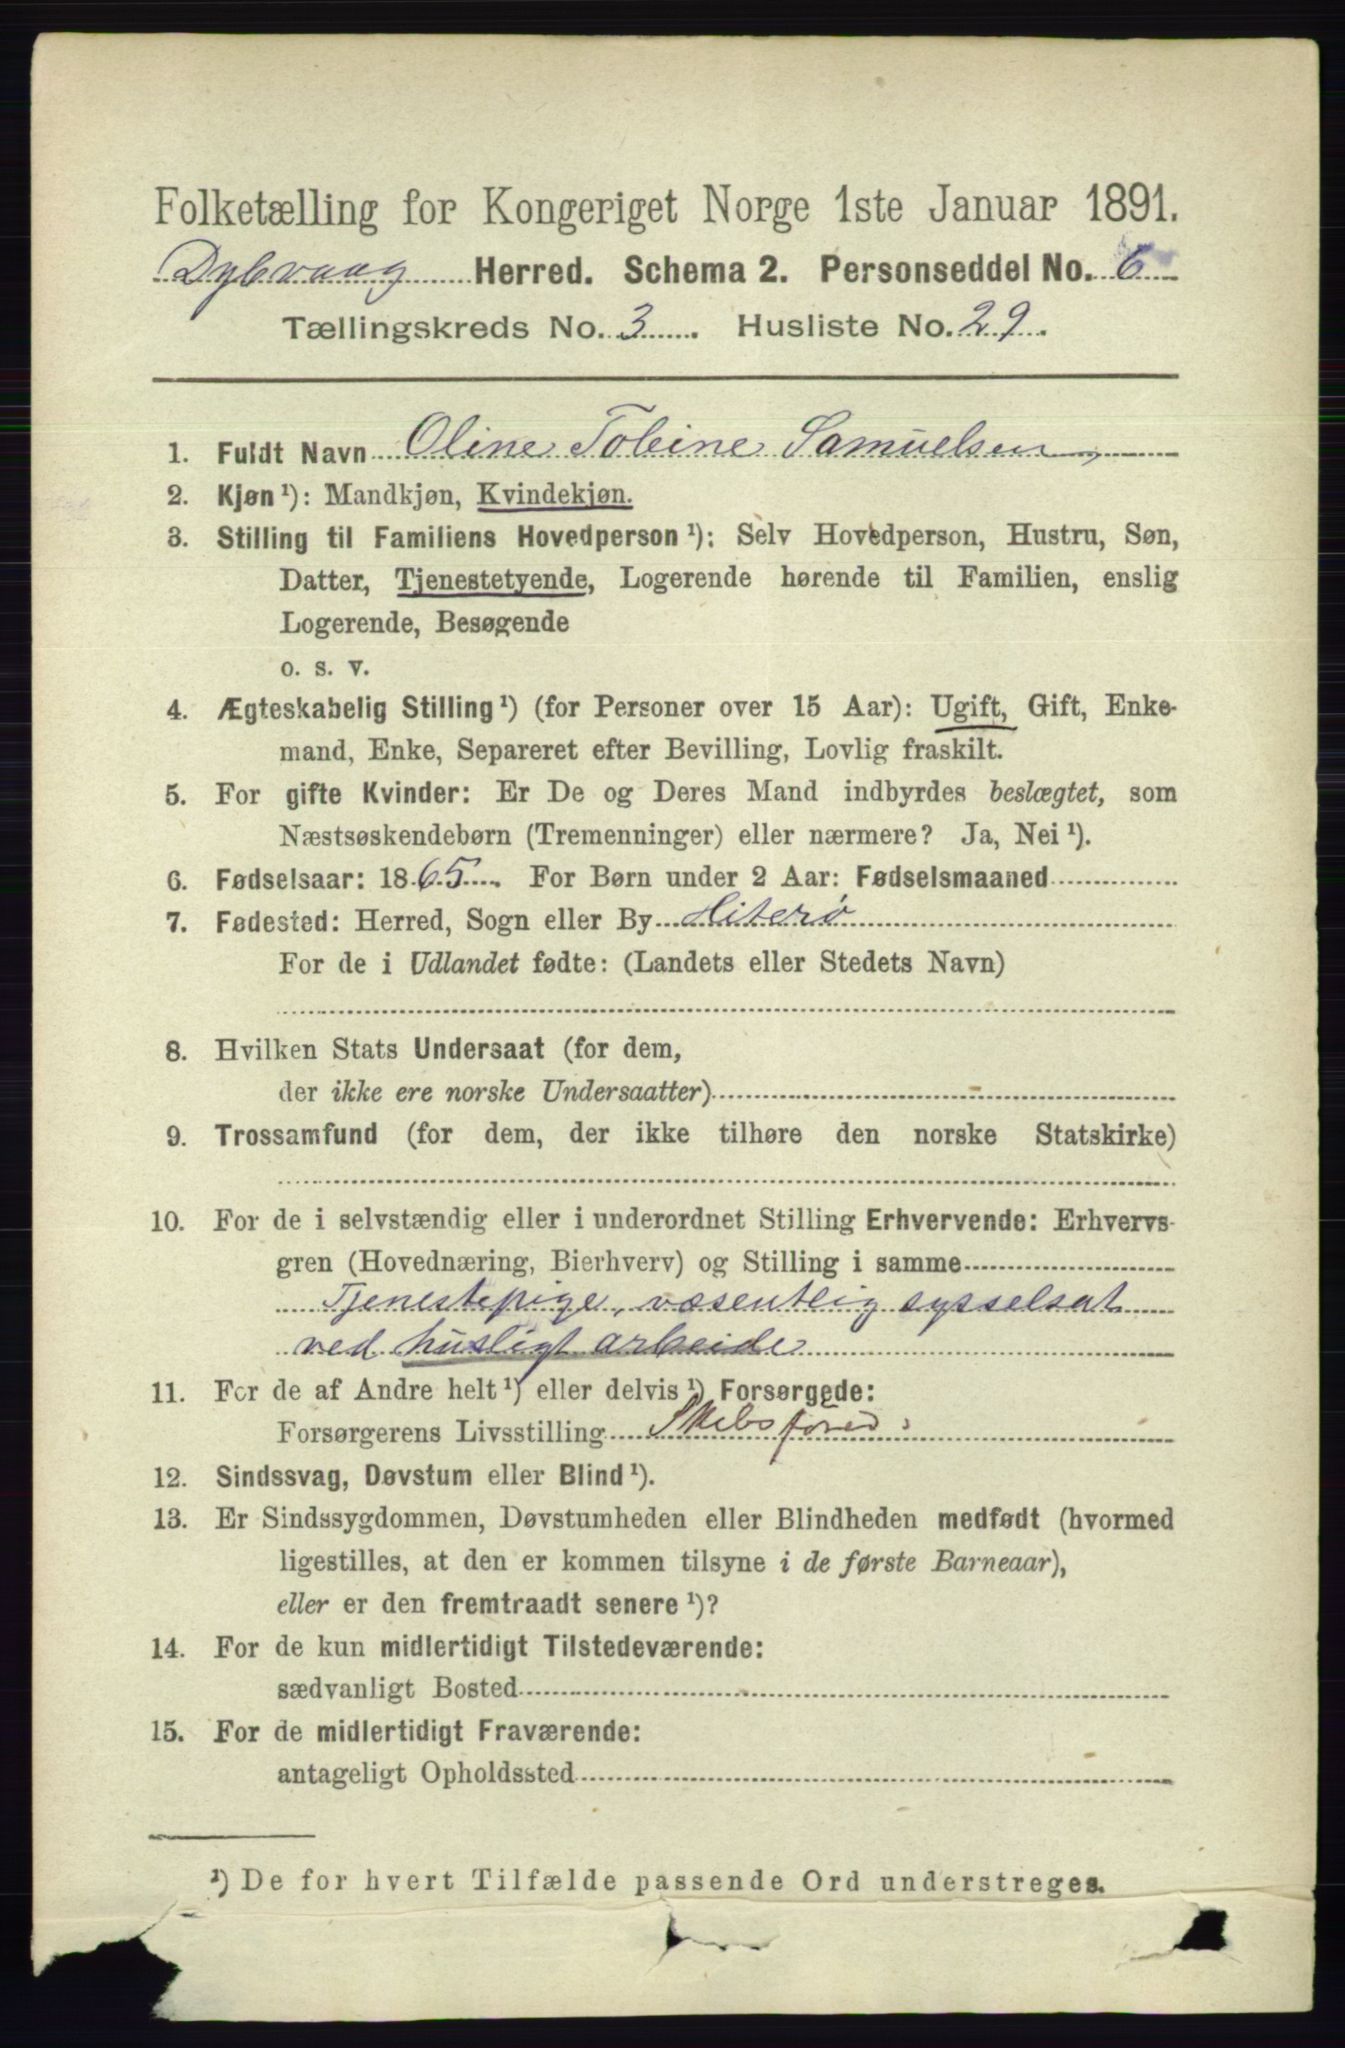 Folketælling for Kongeriget Norge 1ste Januar 1891.
Dybvaag Herred. Schema 2. Personseddel No. 6
Tællingskreds No. 3. Husliste No. 29.
1. Fuldt Navn Oline Tobine Samuelsen,
2. Kjøn ¹): Mandkjøn, Kvindekjøn.
3. Stilling til Familiens Hovedperson ¹): Selv Hovedperson, Hustru, Søn,
Datter, Tjenestetyende, Logerende hørende til Familien, enslig
Logerende, Besøgende
o. s. v.
4. Ægteskabelig Stilling ¹) (for Personer over 15 Aar): Ugift, Gift, Enke-
mand, Enke, Separeret efter Bevilling, Lovlig fraskilt.
5. For gifte Kvinder: Er De og Deres Mand indbyrdes beslægtet, som
Næstsøskendebørn (Tremenninger) eller nærmere? Ja, Nei ¹).
6. Fødselsaar: 1865. For Børn under 2 Aar: Fødselsmaaned
7. Fødested: Herred, Sogn eller By Hiterø
For de i Udlandet fødte: (Landets eller Stedets Navn)
8. Hvilken Stats Undersaat (for dem,
der ikke ere norske Undersaatter)
9. Trossamfund (for dem, der ikke tilhøre den norske Statskirke)
10. For de i selvstændig eller i underordnet Stilling Erhvervende: Erhvervs-
gren (Hovednæring, Bierhverv) og Stilling i samme
Tjenestepige, væsentlig sysselsat
ved husligt arbeide
11. For de af Andre helt ¹) eller delvis ¹) Forsørgede:
Forsørgerens Livsstilling Skibsfører
12. Sindssvag, Døvstum eller Blind ¹).
13. Er Sindssygdommen, Døvstumheden eller Blindheden medfødt (hvormed
ligestilles, at den er kommen tilsyne i de første Barneaar),
eller er den fremtraadt senere ¹)?
14. For de kun midlertidigt Tilstedeværende:
sædvanligt Bosted
15. For de midlertidigt Fraværende:
antageligt Opholdssted
¹) De for hvert Tilfælde passende Ord understreges.